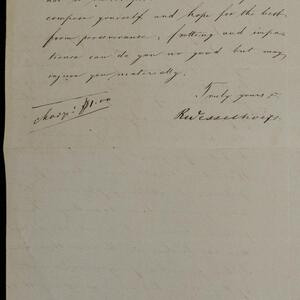 compose yourself and hope for the best
from perseverance, fretting and impa-
tience can do you no good but may
injure you materially.
Truly yours
R. Wesselhoeft.
Charge $1.00